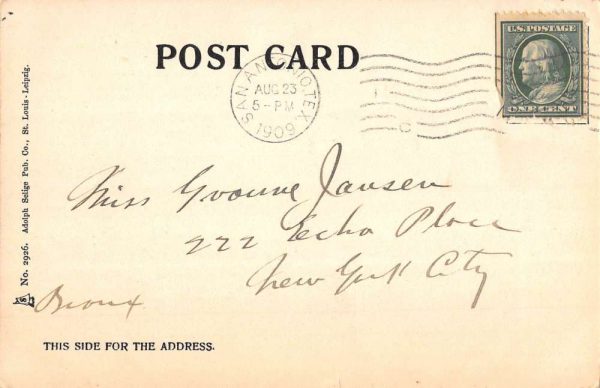 POST CARD
U.S. POSTAGE
ONE CENT
SAN ANTONIO, TEX.
AUG 23
5-PM
1909
Miss Yvonne Jansen
222 Echo Place
New York City
Bronx
THIS SIDE FOR THE ADDRESS.
No. 2926. Adolph Selige Pub. Co., St. Louis-Leipzig.